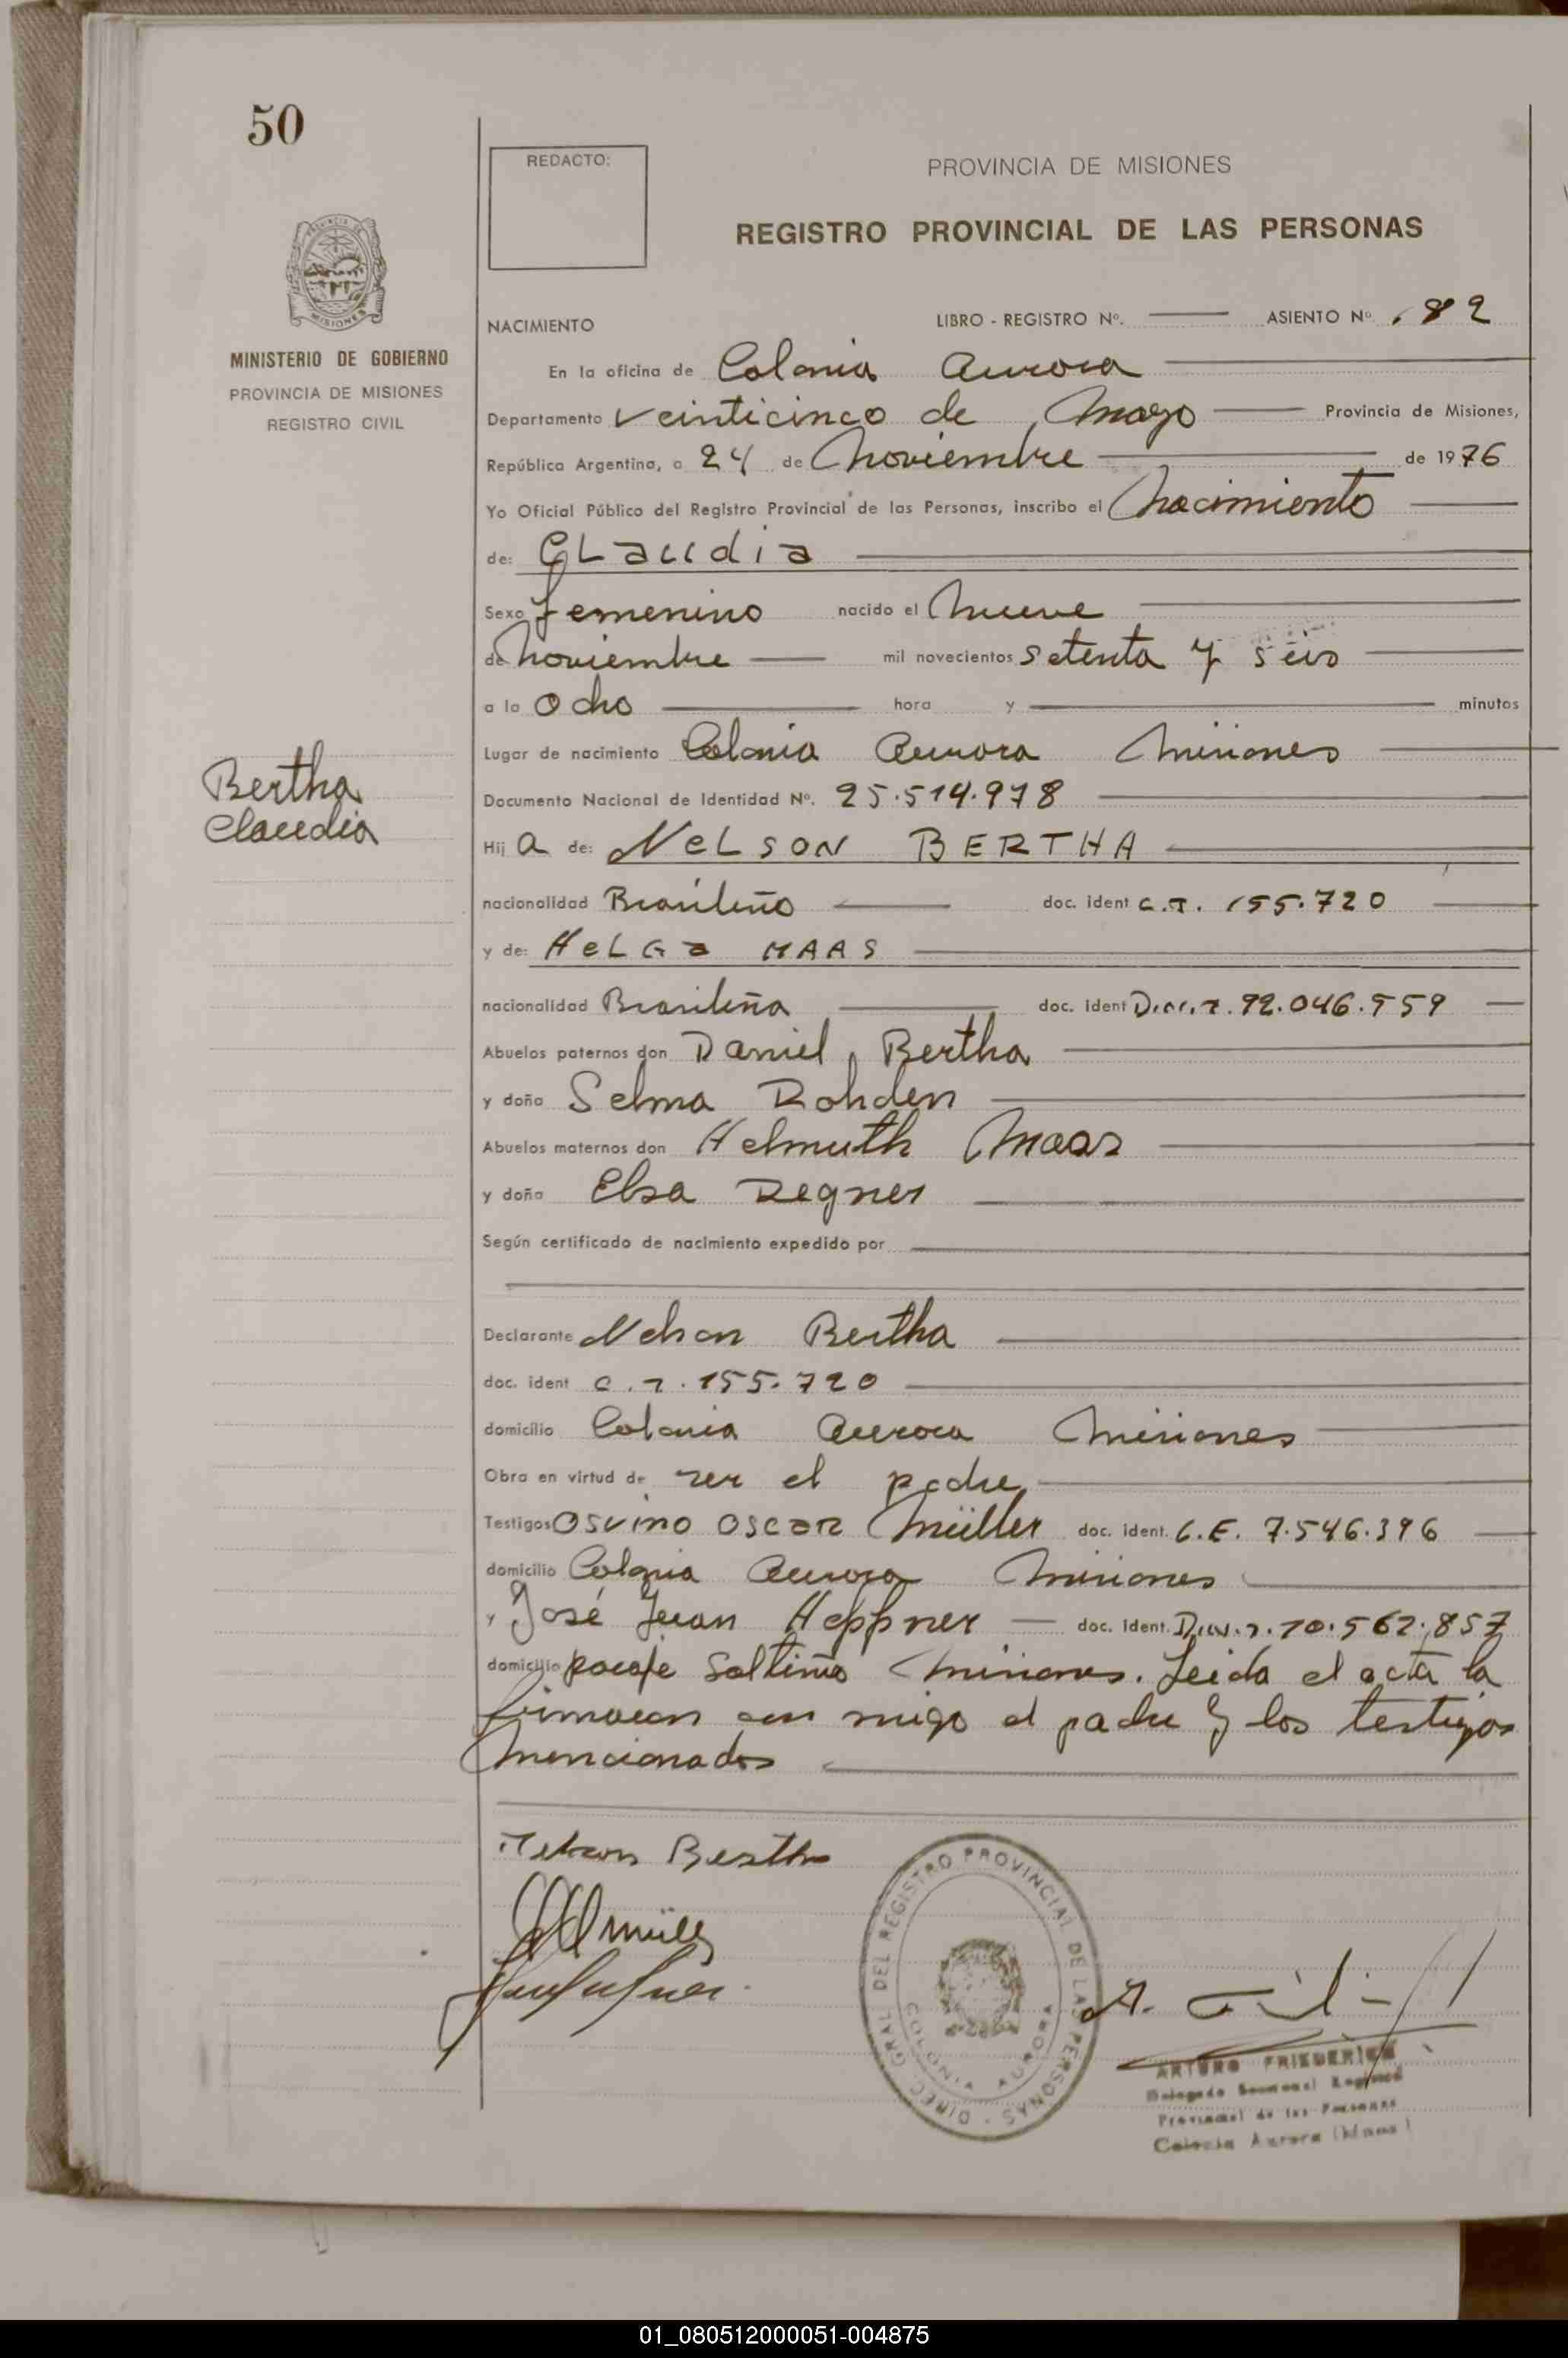 50
REDACTO:
PROVINCIA DE MISIONES
REGISTRO PROVINCIAL DE LAS PERSONAS
MISIONES
MINISTERIO DE GOBIERNO
PROVINCIA DE MISIONES
REGISTRO CIVIL
NACIMIENTO LIBRO - REGISTRO Nº. ASIENTO Nº 182
En la oficina de Colonia Aurora
Departamento Veinticinco de Mayo Provincia de Misiones,
República Argentina, a 24 de Noviembre de 1976
Yo Oficial Público del Registro Provincial de las Personas, inscribo el Nacimiento
de: CLaudia
Sexo femenino nacido el Nueve
de Noviembre mil novecientos setenta y seis
a la Ocho hora y minutos
Lugar de nacimiento Colonia Aurora Misiones
Bertha
Claudia
Documento Nacional de Identidad Nº. 25.514.978
Hij a de: NeLSON BERTHA
nacionalidad Brasileño doc. ident C.I. 155.720
y de: HeLGa MAAS
nacionalidad Brasileña doc. ident D.N.I. 92.046.559
Abuelos paternos don Daniel Bertha
y doña Selma Rohden
Abuelos maternos don Helmuth Maas
y doña Elsa Regner
Según certificado de nacimiento expedido por
Declarante Nelson Bertha
doc. ident C.I. 155.720
domicilio Colonia Aurora Misiones
Obra en virtud de ser el padre
Testigos Osvino Oscar Müller doc. ident. L.E. 7.546.396
domicilio Colonia Aurora Misiones
y José Juan Heppner doc. ident. D.N.I. 10.562.857
domicilio paraje Saltiño Misiones. Leida el acta la
firmaron con migo el padre y los testigos
Mencionados
Nelson Bertha
Müller
DIREC. GRAL DEL REGISTRO PROVINCIAL DE LAS PERSONAS
COLONIA AURORA
ARTURO FRIEDERICH
Delegado Seccional Registro
Provincial de las Personas
Colonia Aurora (Mnes)
01_080512000051-004875